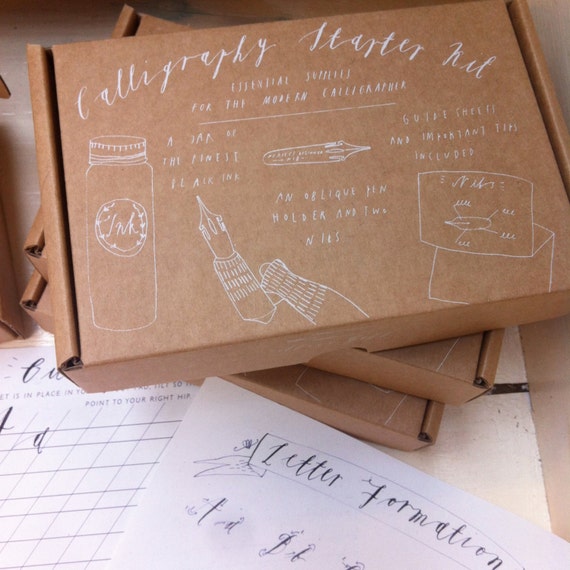 Calligraphy Starter Kit
ESSENTIAL SUPPLIES
FOR THE MODERN CALLIGRAPHER
A JAR OF
THE FINEST
BLACK INK
GUIDE SHEETS
AND IMPORTANT TIPS
INCLUDED
AN OBLIQUE PEN
HOLDER AND TWO
NIBS
Ink
Nibs
ET IS IN PLACE IN
TILT SO
POINT TO YOUR RIGHT HIP
Letter Formation